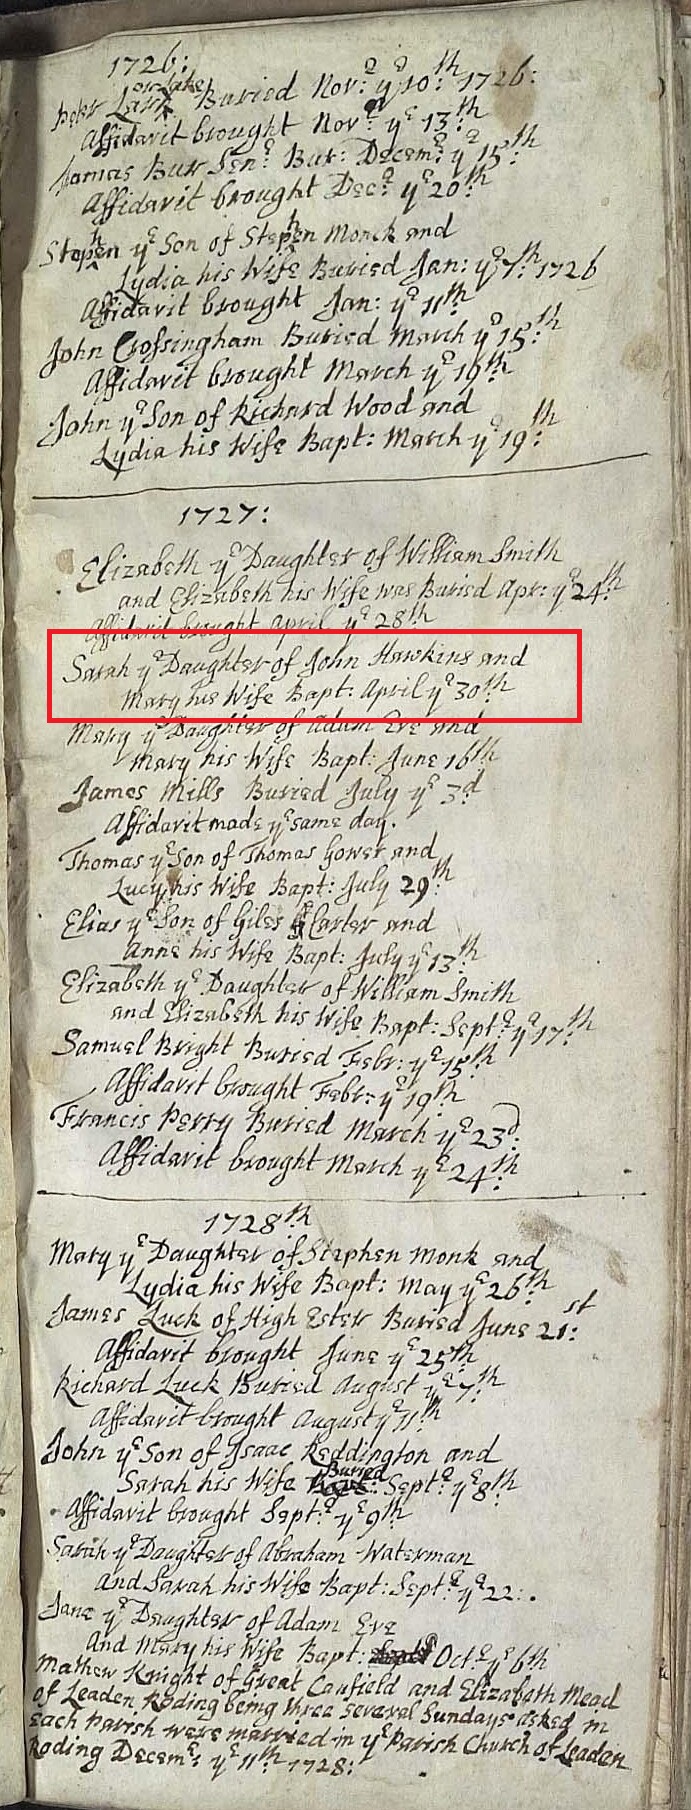 1726:
Peter Lark or Lake Buried Nov:r ye 10:th 1726:
Affidavit brought Nov:r ye 13:th
James Bur Sen:r Bur: Decem:r ye 15:th
Affidavit brought Dec:r ye 20:th
Stephen ye Son of Stephen Monck and
Lydia his Wife Buried Jan: ye 7:th 1726
Affidavit brought Jan: ye 11:th
John Crossingham Buried March ye 15:th
Affidavit brought March ye 19:th
John ye Son of Richard Wood and
Lydia his Wife Bapt: March ye 19:th
1727:
Elizabeth ye Daughter of William Smith
and Elizabeth his Wife was Buried Apr: ye 24:th
Affidavit brought April ye 28:th
Sarah ye Daughter of John Hawkins and
Mary his Wife Bapt: April ye 30:th
Mary ye Daughter of Adam Eve and
Mary his Wife Bapt: June 16th
James Mills Buried July ye 3d
Affidavit made ye same day.
Thomas ye Son of Thomas Gower and
Lucy his Wife Bapt: July 29:th
Elias ye Son of Giles Carter and
Anne his Wife Bapt: July ye 13:th
Elizabeth ye Daughter of William Smith
and Elizabeth his Wife Bapt: Sept:r ye 17:th
Samuel Bright Buried Febr: ye 15:th
Affidavit brought Febr: ye 19:th
Francis Perry Buried March ye 23:d
Affidavit brought March ye 24:th
1728th
Mary ye Daughter of Stephen Monk and
Lydia his Wife Bapt: May ye 26:th
James Luck of High Ester Buried June 21:st
Affidavit brought June ye 25th
Richard Luck Buried August ye 7:th
Affidavit brought August ye 11:th
John ye Son of Isaac Reddington and
Sarah his Wife Buried Sept:r ye 8:th
Affidavit brought Sept:r ye 9:th
Sarah ye Daughter of Abraham Waterman
and Sarah his Wife Bapt: Sept:r ye 22:.
Jane ye Daughter of Adam Eve
And Mary his Wife Bapt: Oct:r ye 6th
Mathew Knight of Great Canfield and Elizabeth Mead
of Leaden Roding being three several Sundays asked in
each Parish were married in ye Parish Church of Leaden
Roding Decem:r ye 11:th 1728: